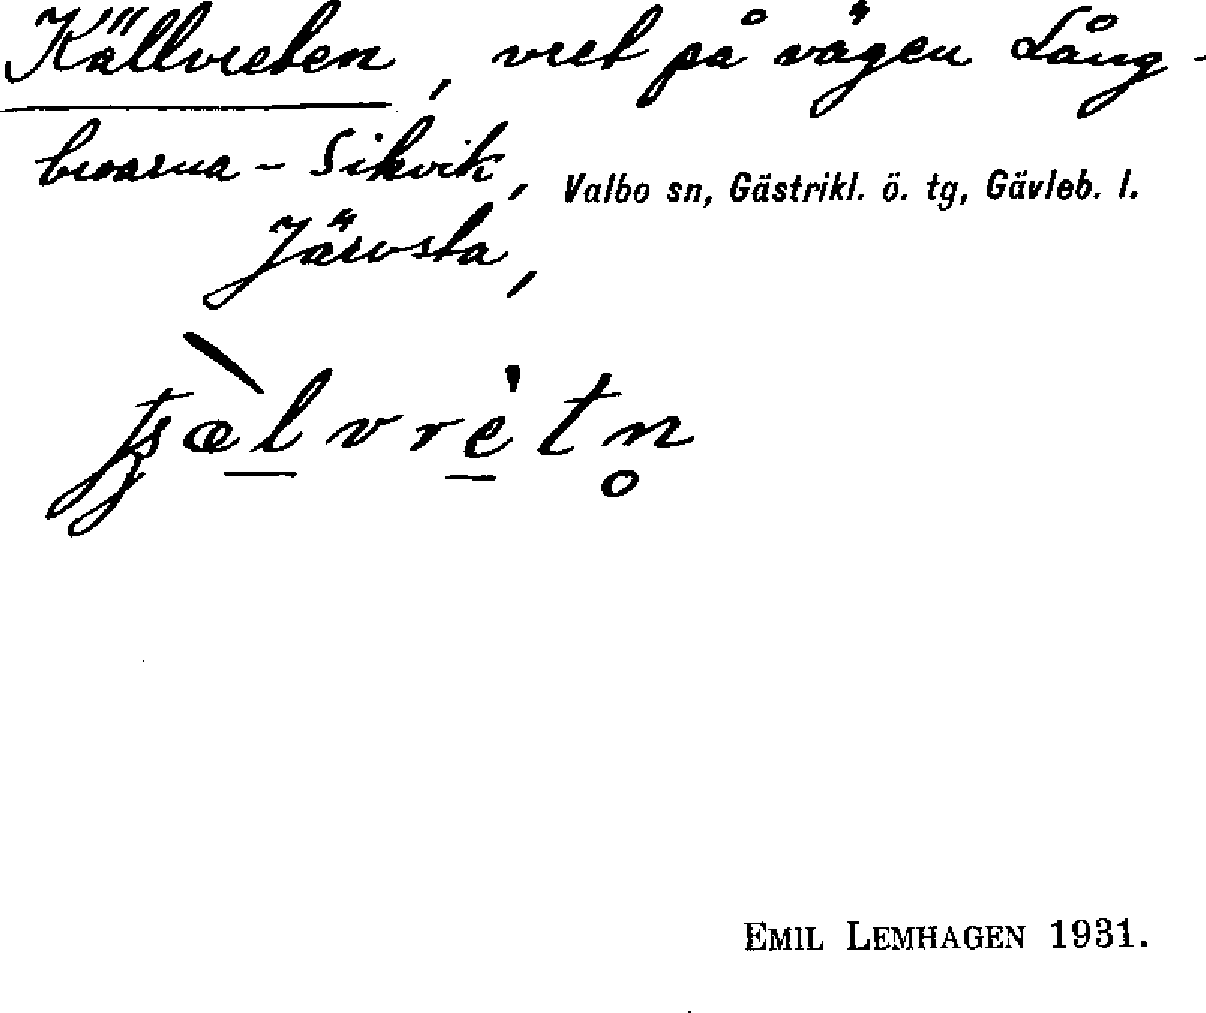 Källvreten, vret på vägen Lång-
broarna - Sikvik,
Valbo sn, Gästrikl. ö. tg, Gävleb. l.
Järvsta,
EMIL LEMHAGEN 1931.